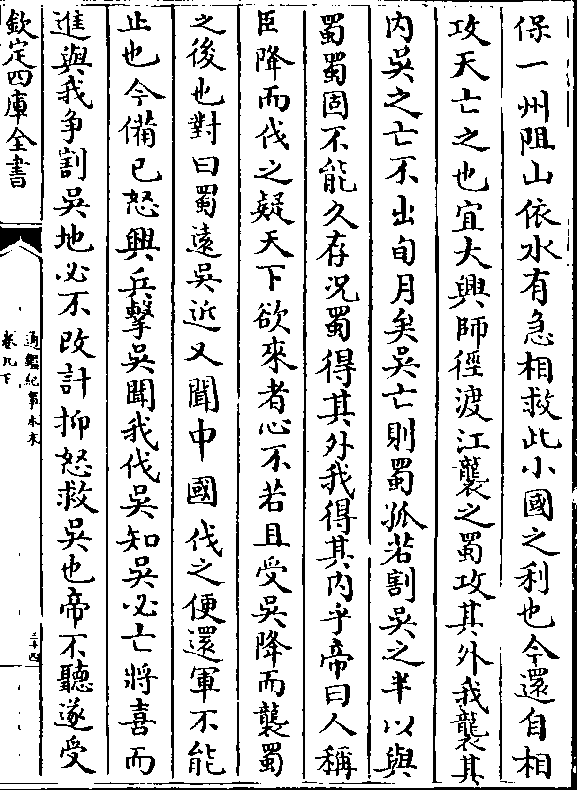 保一州阻山依水有急相救此小國之利也今還自相
攻天亡之也宜大興師徑渡江襲之蜀攻其外我襲其
内吳之亡不出旬月矣吳亡則蜀孤若割吳之半以與
蜀蜀固不能久存况蜀得其外我得其内乎帝曰人稱
臣降而伐之疑天下欲來者心不若且受吳降而襲蜀
之後也對曰蜀逺吳近又聞中國伐之便還軍不能
止也今備已怒興兵擊吳聞我伐吳知吳必亡將喜而
進與我爭割吳地必不改計抑怒救吳也帝不聽遂受
欽定四庫全書
通鑑紀事本末
卷九下
三十四